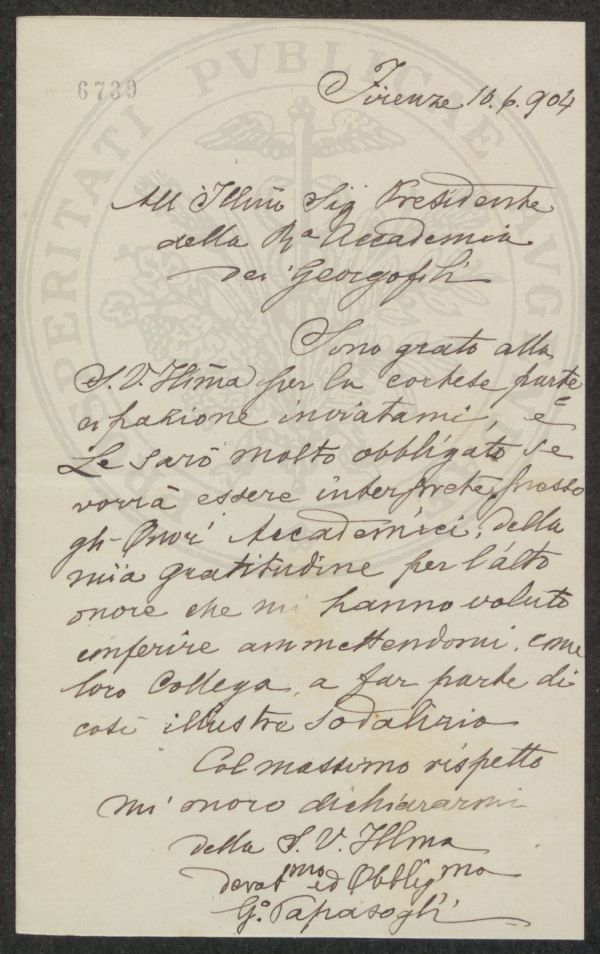 6739
PROSPERITATI PVBLICAE AVGENDAE
Firenze 16. 6. 904
All'Illmo Sig Presidente
della Ra Accademia
dei Georgofili
Sono grato alla
S. V. Illma per la cortese parte
cipazione inviatami, e
Le sarò molto obbligato se
vorrà essere interprete, presso
gli Onori Accademici, della
mia gratitudine per l'alto
onore che mi hanno voluto
conferire ammettendomi, come
loro Collega, a far parte di
così illustre Sodalizio
Col massimo rispetto
mi onoro dichiararmi
della S. V. Illma
devotmo ed Obbligmo
Go. Papasogli